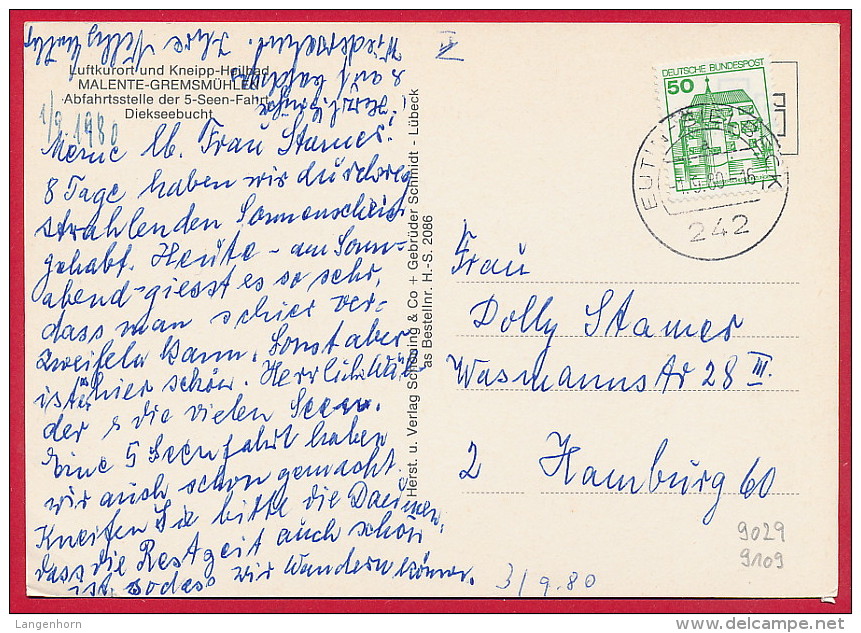 Luftkurort und Kneipp-Heilbad
MALENTE-GREMSMÜHLEN
Abfahrtsstelle der 5-Seen-Fahrt
Diekseebucht
1/9 1980
Meine lb. Frau Stamer!
8 Tage haben wir durchweg
strahlenden Sonnenschein
gehabt. Heute - am Sonn-
abend - giesst es so sehr,
dass man schier ver-
zweifeln kann. Sonst aber
ist es hier schön. Herrlich Wäl-
der & die vielen Seen.
Eine 5 Seenfahrt haben
wir auch schon gemacht.
Kneifen Sie bitte die Daumen,
dass die Restzeit auch schön
ist, sodass wir wandern können.
Herzl. Grüsse
& auf baldiges
Wiedersehen. Ihre Nelly
Herst. u. Verlag Schöning & Co + Gebrüder Schmidt - Lübeck
as Bestellnr. H.-S. 2086
DEUTSCHE BUNDESPOST
50
EUTIN
9.80-16
242
Frau
Dolly Stamer
Wasmannstr 28 III.
2 Hamburg 60
3/9.80
9029
9109
Langenhorn
www.delcampe.net